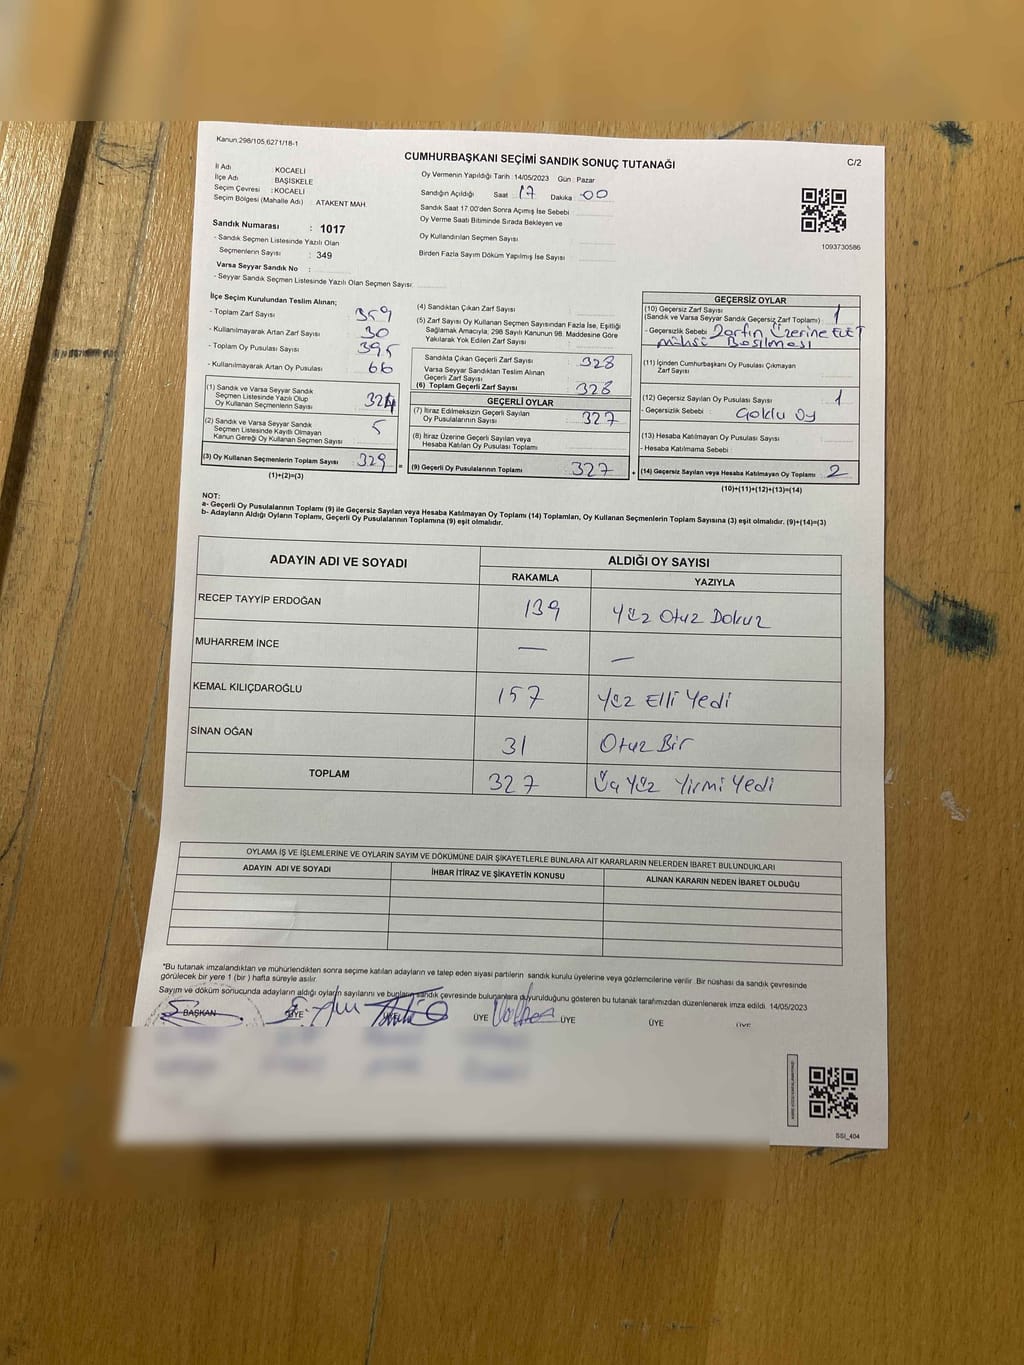 Kanun.298/105,6271/18-1
CUMHURBAŞKANI SEÇİMİ SANDIK SONUÇ TUTANAĞI
C/2
İl Adı KOCAELİ
İlçe Adı BAŞİSKELE
Seçim Çevresi : KOCAELİ
Seçim Bölgesi (Mahalle Adı) : ATAKENT MAH
Sandık Numarası : 1017
- Sandık Seçmen Listesinde Yazılı Olan
Seçmenlerin Sayısı : 349
Varsa Seyyar Sandık No :
- Seyyar Sandık Seçmen Listesinde Yazılı Olan Seçmen Sayısı:
Oy Vermenin Yapıldığı Tarih : 14/05/2023 Gün : Pazar
Sandığın Açıldığı Saat : 17 Dakika : 00
Sandık Saat 17.00'den Sonra Açımış İse Sebebi
Oy Verme Saati Bitiminde Sırada Bekleyen ve
Oy Kullandırılan Seçmen Sayısı
Birden Fazla Sayım Döküm Yapılmış İse Sayısı
1093730586
İlçe Seçim Kurulundan Teslim Alınan;
- Toplam Zarf Sayısı 359
- Kullanılmayarak Artan Zarf Sayısı 30
- Toplam Oy Pusulası Sayısı 395
- Kullanılmayarak Artan Oy Pusulası 66
(1) Sandık ve Varsa Seyyar Sandık
Seçmen Listesinde Yazılı Olup
Oy Kullanan Seçmenlerin Sayısı 324
(2) Sandık ve Varsa Seyyar Sandık
Seçmen Listesinde Kayıtlı Olmayan
Kanun Gereği Oy Kullanan Seçmen Sayısı 5
(3) Oy Kullanan Seçmenlerin Toplam Sayısı 329 =
(1)+(2)=(3)
(4) Sandıktan Çıkan Zarf Sayısı
(5) Zarf Sayısı Oy Kullanan Seçmen Sayısından Fazla İse, Eşitliği
Sağlamak Amacıyla; 298 Sayılı Kanunun 98. Maddesine Göre
Yakılarak Yok Edilen Zarf Sayısı
Sandıkta Çıkan Geçerli Zarf Sayısı 328
Varsa Seyyar Sandıktan Teslim Alınan
Geçerli Zarf Sayısı
(6) Toplam Geçerli Zarf Sayısı 328
GEÇERLİ OYLAR
(7) İtiraz Edilmeksizin Geçerli Sayılan
Oy Pusulalarının Sayısı 327
(8) İtiraz Üzerine Geçerli Sayılan veya
Hesaba Katılan Oy Pusulası Toplamı
(9) Geçerli Oy Pusulalarının Toplamı 327 +
GEÇERSİZ OYLAR
(10) Geçersiz Zarf Sayısı
(Sandık ve Varsa Seyyar Sandık Geçersiz Zarf Toplamı) : 1
- Geçersizlik Sebebi : Zarfın Üzerine EVET
mührü Basılması
(11) İçinden Cumhurbaşkanı Oy Pusulası Çıkmayan
Zarf Sayısı
(12) Geçersiz Sayılan Oy Pusulası Sayısı 1
- Geçersizlik Sebebi :
(13) Hesaba Katılmayan Oy Pusulası Sayısı
- Hesaba Katılmama Sebebi
(14) Geçersiz Sayılan veya Hesaba Katılmayan Oy Toplamı 2
(10)+(11)+(12)+(13)=(14)
NOT:
a- Geçerli Oy Pusulalarının Toplamı (9) ile Geçersiz Sayılan veya Hesaba Katılmayan Oy Toplamı (14) Toplamları, Oy Kullanan Seçmenlerin Toplam Sayısına (3) eşit olmalıdır. (9)+(14)=(3)
b- Adayların Aldığı Oyların Toplamı, Geçerli Oy Pusulalarının Toplamına (9) eşit olmalıdır.
ADAYIN ADI VE SOYADI ALDIĞI OY SAYISI
RAKAMLA YAZIYLA
RECEP TAYYİP ERDOĞAN 139 Yüz Otuz Dokuz
MUHARREM İNCE — —
KEMAL KILIÇDAROĞLU 157 Yüz Elli Yedi
SİNAN OĞAN 31 Otuz Bir
TOPLAM 327 Üç Yüz Yirmi Yedi
OYLAMA İŞ VE İŞLEMLERİNE VE OYLARIN SAYIM VE DÖKÜMÜNE DAİR ŞİKAYETLERLE BUNLARA AİT KARARLARIN NELERDEN İBARET BULUNDUKLARI
ADAYIN ADI VE SOYADI İHBAR İTİRAZ VE ŞİKAYETİN KONUSU ALINAN KARARIN NEDEN İBARET OLDUĞU
"Bu tutanak imzalandıktan ve mühürlendikten sonra seçime katılan adayların ve talep eden siyasi partilerin sandık kurulu üyelerine veya gözlemcilerine verilir. Bir nüshası da sandık çevresinde
görülecek bir yere 1 (bir ) hafta süreyle asılır.
Sayım ve döküm sonucunda adayların aldığı oyların sayılarını ve bunların sandık çevresinde bulunanlara duyurulduğunu gösteren bu tutanak tarafımızdan düzenlenerek imza edildi. 14/05/2023
BAŞKAN ÜYE ÜYE ÜYE ÜYE ÜYE ÜYE
SSI_404